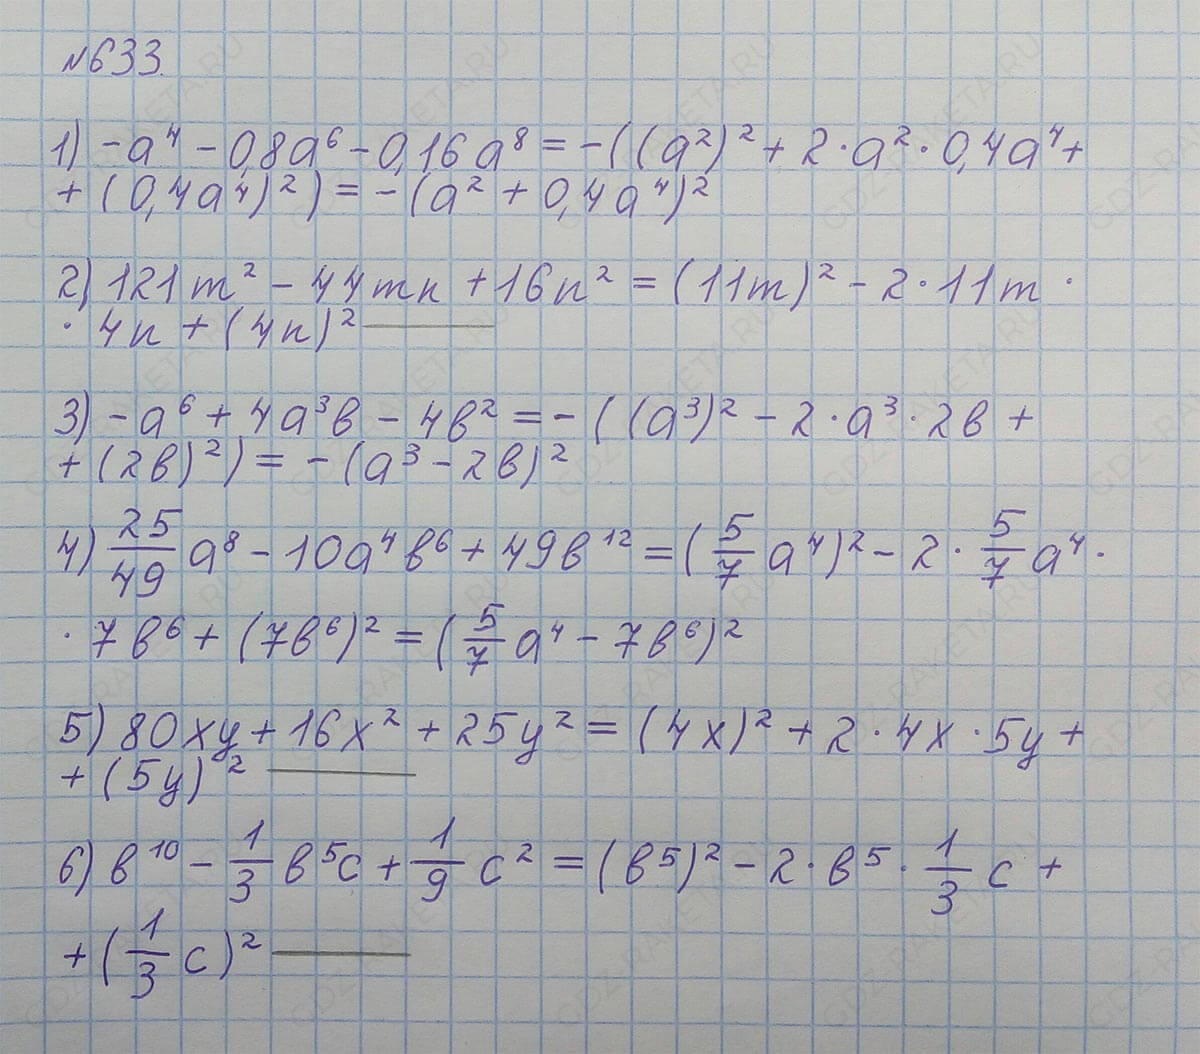 №633.
1) -a⁴ - 0,8a⁶ - 0,16a⁸ = -((a²)² + 2·a²·0,4a⁴ +
+ (0,4a⁴)²) = -(a² + 0,4a⁴)²
2) 121m² - 44mn + 16n² = (11m)² - 2·11m ·
· 4n + (4n)² ———
3) -a⁶ + 4a³в - 4в² = -((a³)² - 2·a³·2в +
+ (2в)²) = -(a³ - 2в)²
4) 25/49 a⁸ - 10a⁴в⁶ + 49в¹² = (5/7 a⁴)² - 2· 5/7 a⁴ ·
· 7в⁶ + (7в⁶)² = (5/7 a⁴ - 7в⁶)²
5) 80xy + 16x² + 25y² = (4x)² + 2·4x·5y +
+ (5y)² ———
6) в¹⁰ - 1/3 в⁵c + 1/9 c² = (в⁵)² - 2·в⁵· 1/3 c +
+ (1/3 c)² ———